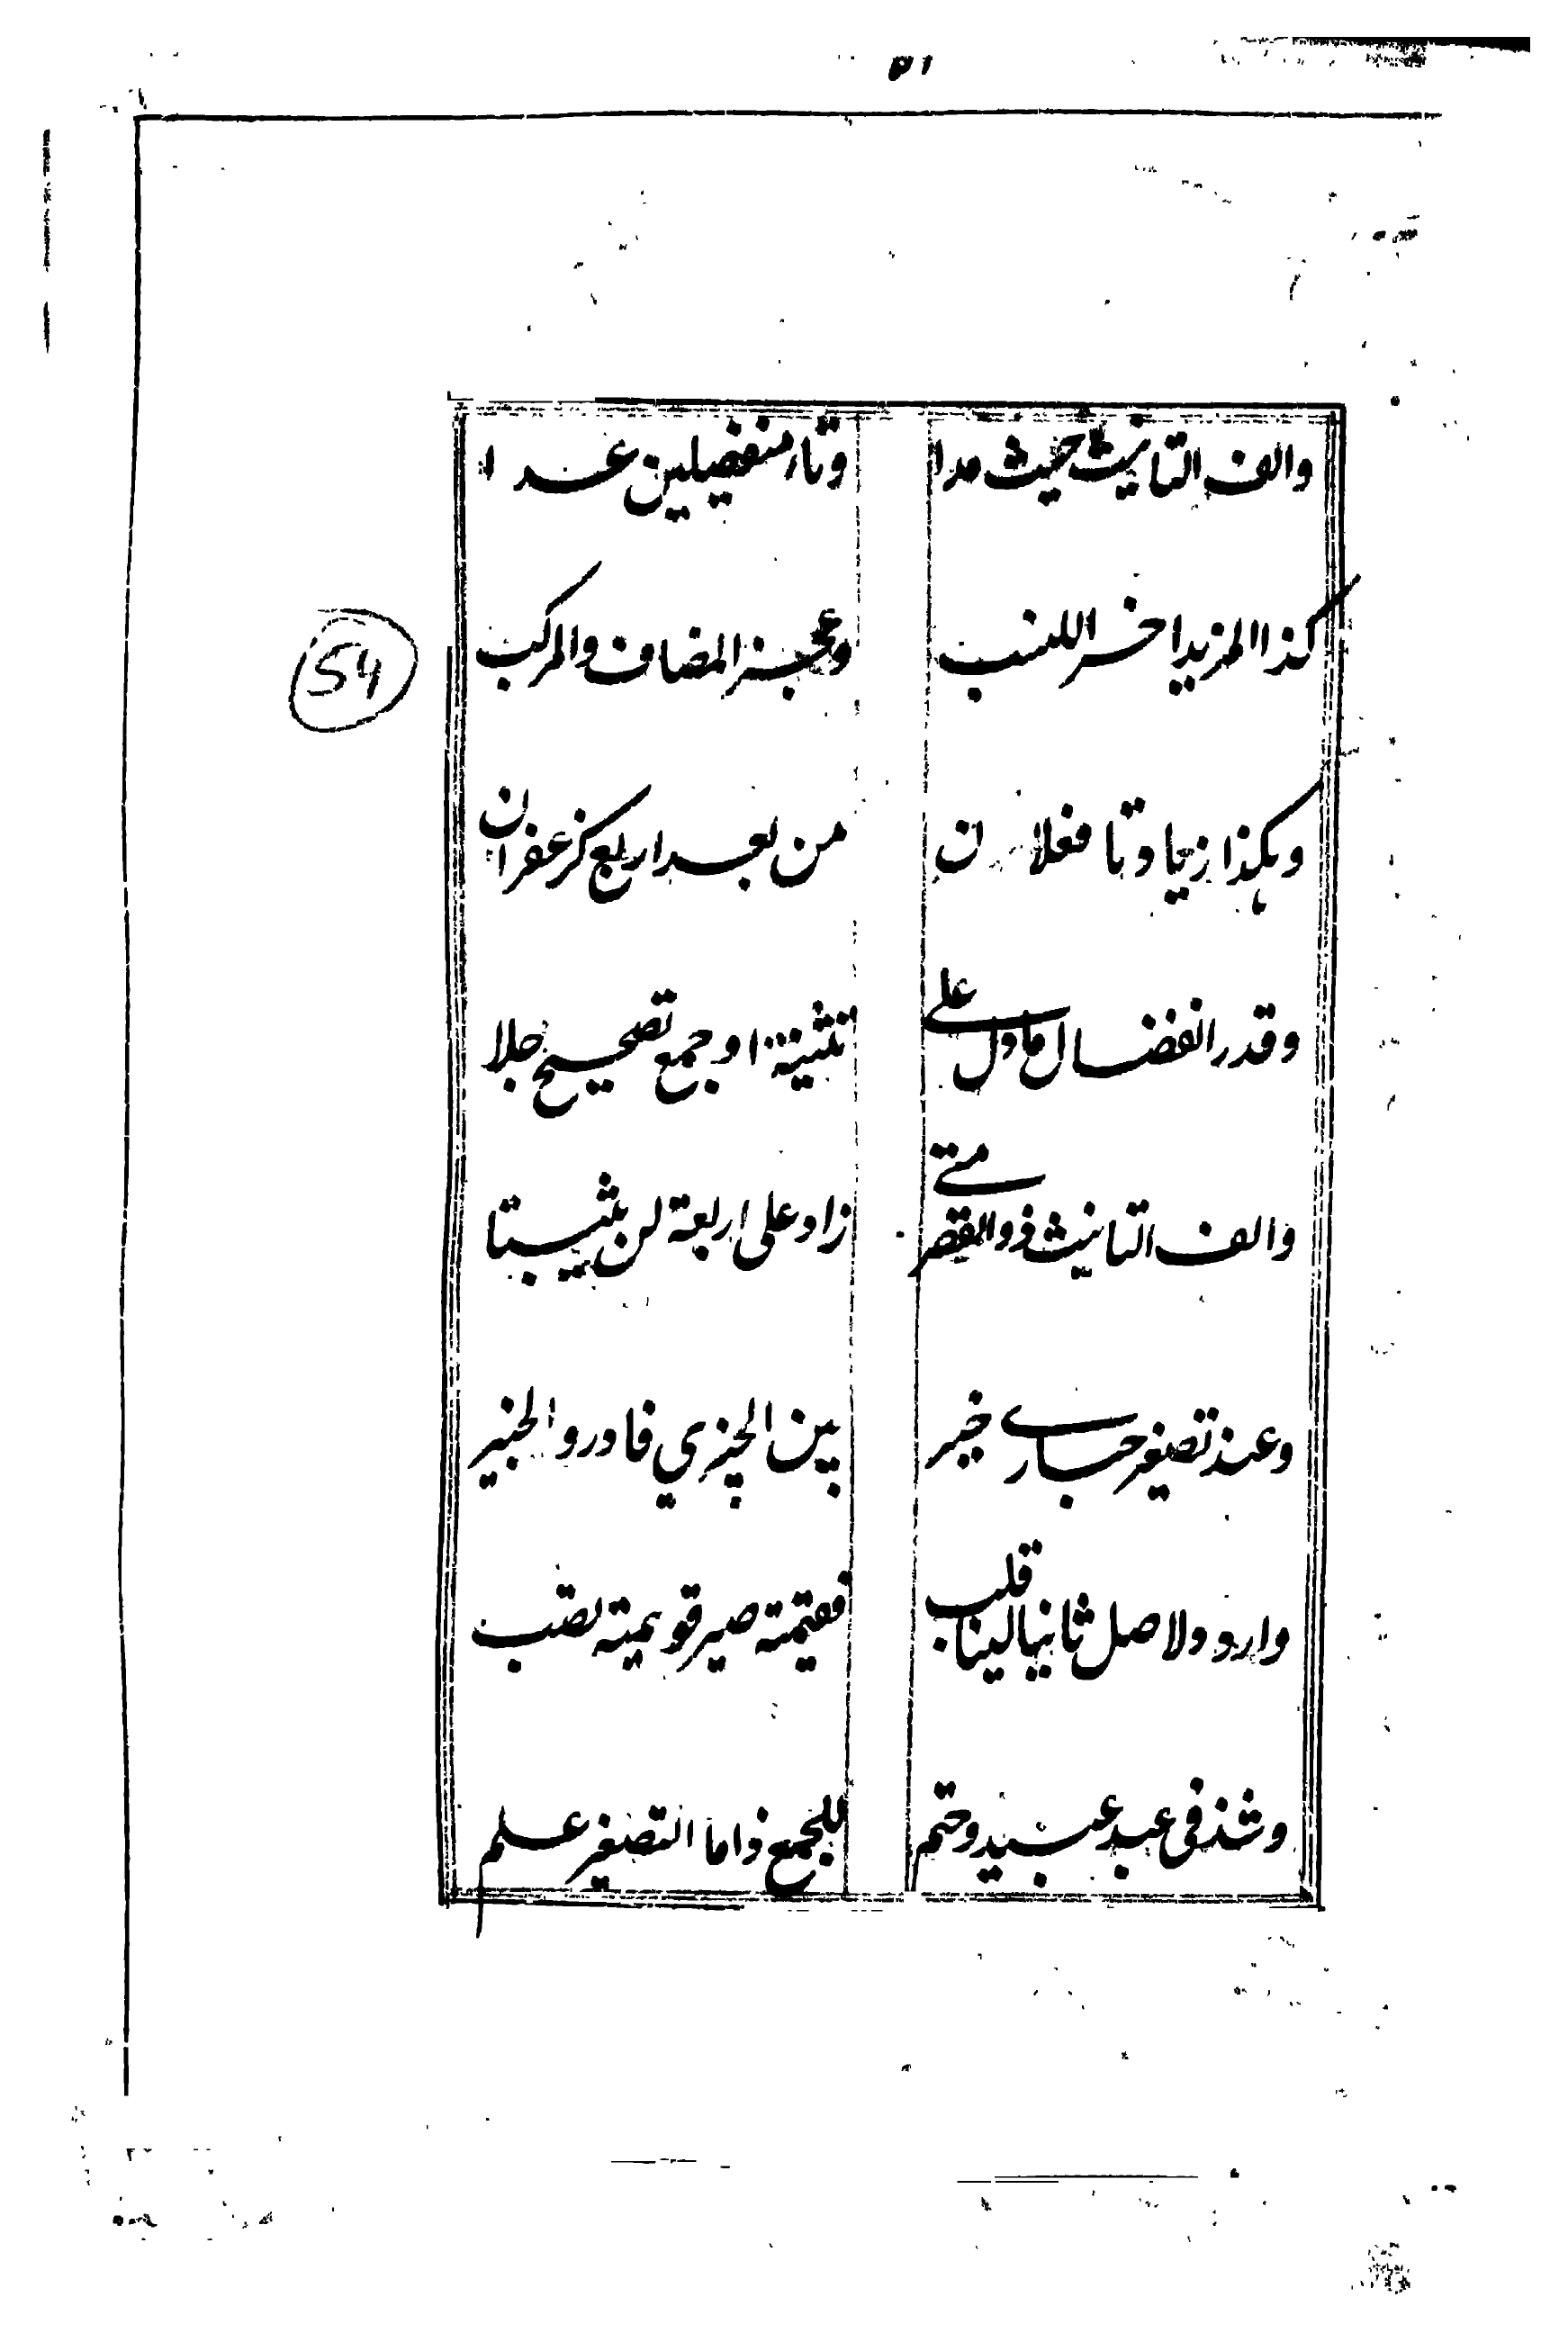 ٥١
والف التانيث حيث مدا وتاؤ منفصلين عدا
كذا المزيد اخر اللنسب وعجز المضاف والمركب
54
وهكذا زيادتا فعلان من بعد اربع كزعفران
وقدر انفصال ما دل على تثنية او جمع تصحيح جلا
والف التانيث ذو القصر متى زاد على اربعة لن يثبتا
وعند تصغير حبارى خير بين الحبيرى فادر والحبير
واردد ولاصل ثانيا لينا قلب فقيمة صير قويمة تصب
وشذ فى عيد عييد وحتم للجمع ذا ما التصغير علم